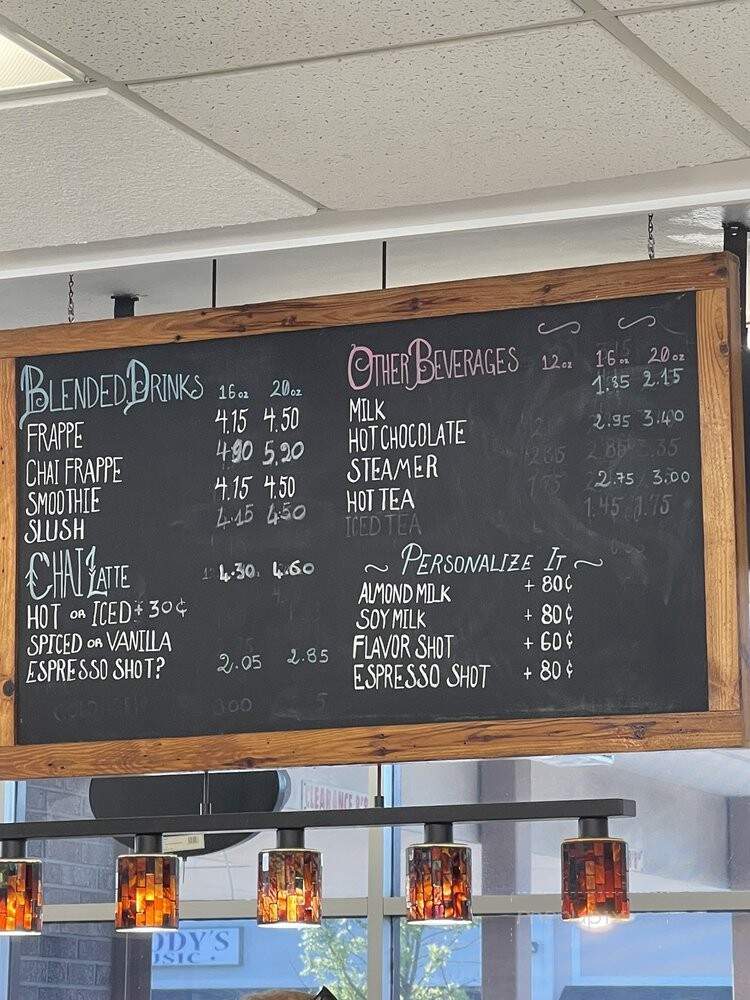 BLENDED DRINKS 16oz 20oz
FRAPPE 4.15 4.50
CHAI FRAPPE 4.90 5.20
SMOOTHIE 4.15 4.50
SLUSH 4.15 4.50
CHAI LATTE 4.30 4.60
HOT OR ICED + 30¢
SPICED OR VANILLA
ESPRESSO SHOT? 2.05 2.85
OTHER BEVERAGES 12oz 16oz 20oz
1.85 2.15
MILK
HOT CHOCOLATE 2.95 3.40
STEAMER
HOT TEA 2.75 3.00
ICED TEA 1.45 1.75
~ PERSONALIZE IT ~
ALMOND MILK + 80¢
SOY MILK + 80¢
FLAVOR SHOT + 60¢
ESPRESSO SHOT + 80¢
CLEARANCE